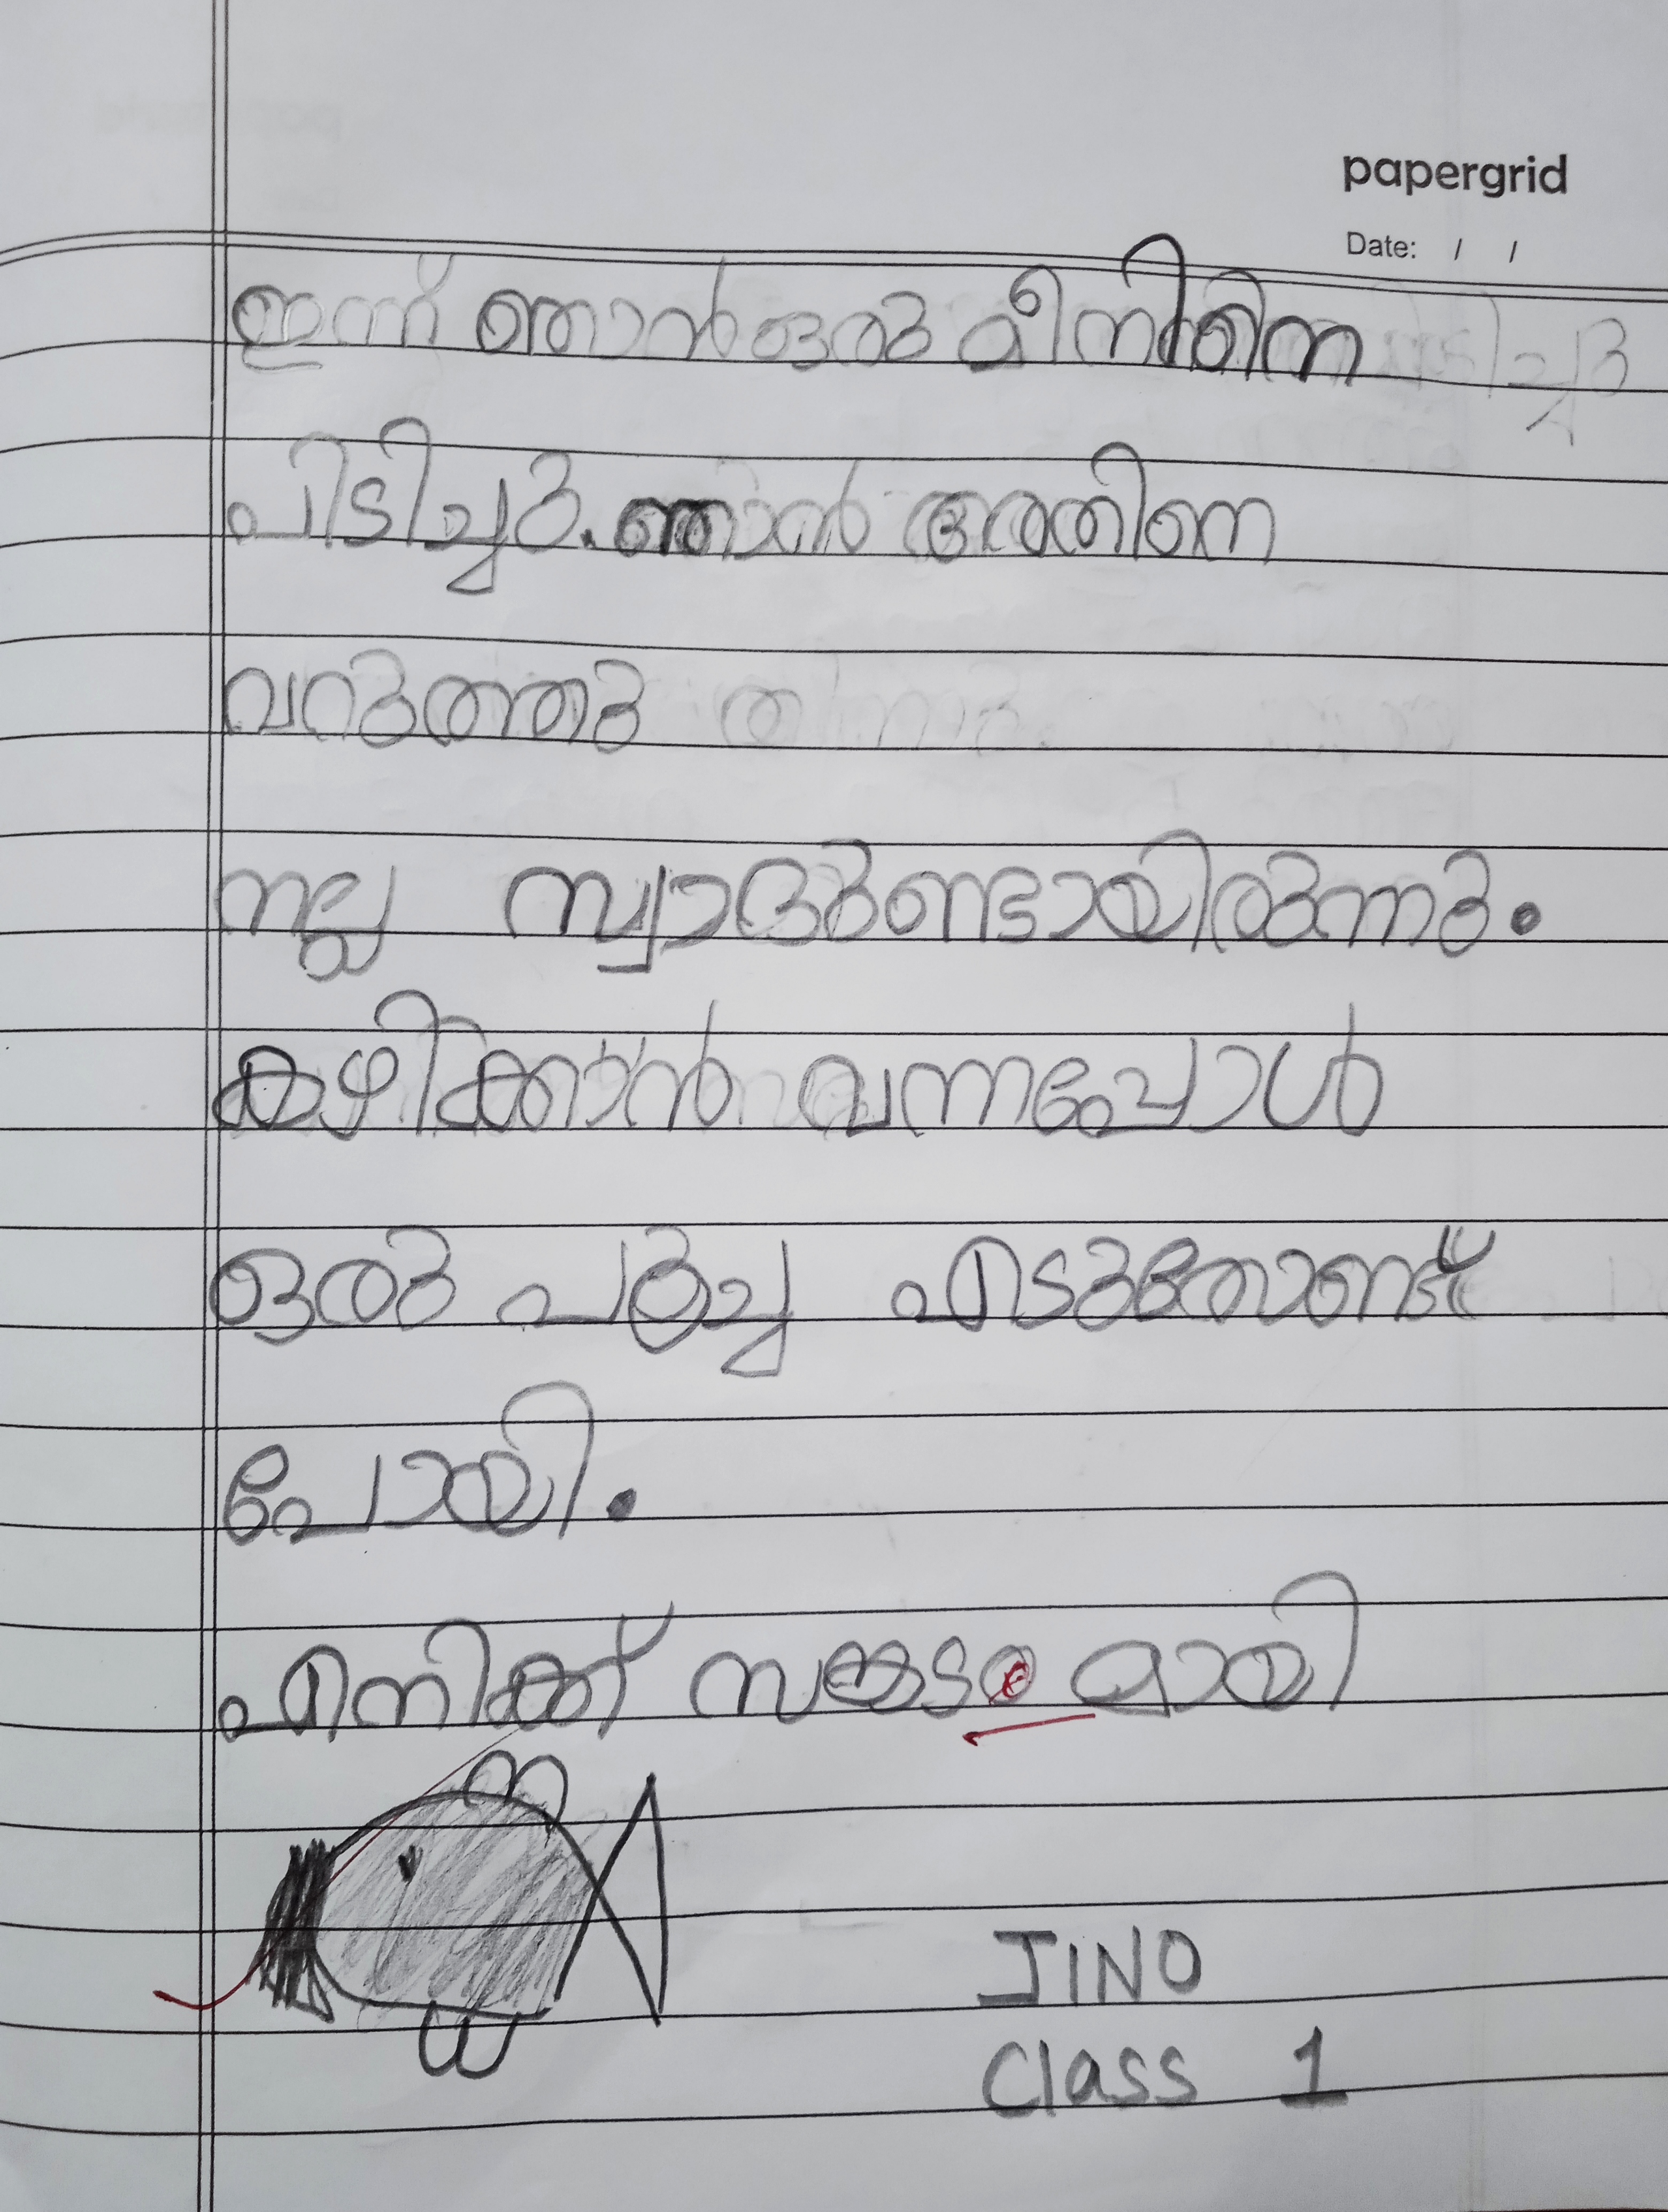 papergrid
Date: / /
ഇന്ന് ഞാൻ ഒരു മീനിനെ
പിടിച്ചു. ഞാൻ അതിനെ
വറുത്തു
നല്ല സ്വാദുണ്ടായിരുന്നു.
കഴിക്കാൻ വന്നപ്പോൾ
ഒരു പൂച്ച എടുത്തോണ്ട്
പോയി.
എനിക്ക് സങ്കട മായി
JINO
Class 1